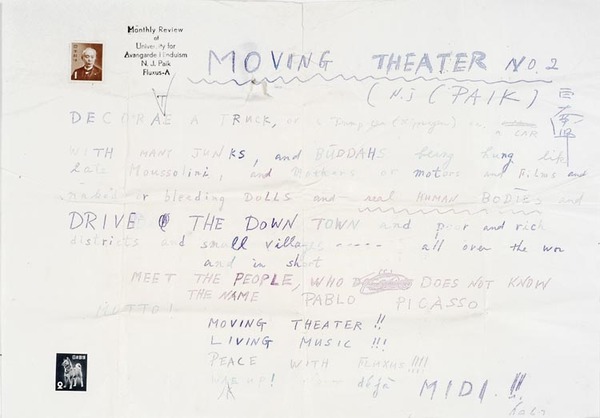 Monthly Review
of
University for
Avangarde Hinduism
N. J. Paik
Fluxus-A
MOVING THEATER NO. 2
(N.J (PAIK)
DECORAE A TRUCK, or a
CAR
WITH MANY JUNKS, and BUDDAHS being hung like
late Moussolini, and or motors and Films and
naked or bleeding Dolls and real HUMAN BODIES and
DRIVE THE DOWN TOWN and poor and rich
districts and small villages ----- all over the wor
and in short
MEET THE PEOPLE, WHO DOES NOT KNOW
THE NAME PABLO PICASSO
MOTTO!
MOVING THEATER !!
LIVING MUSIC !!!
PEACE WITH FLUXUS !!!!
WAKE UP! déjà MIDI. !!